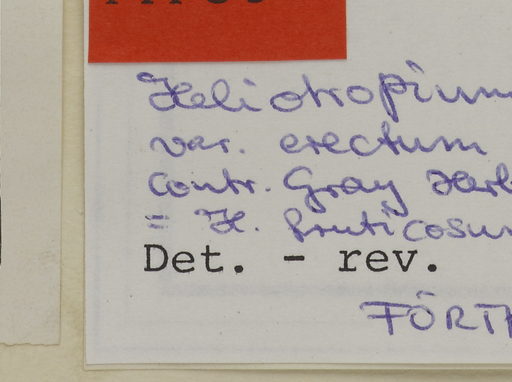 Heliotropium
var. erectum
Contr. Gray Herb
= H. fruticosum
Det. - rev.
FÖRTH